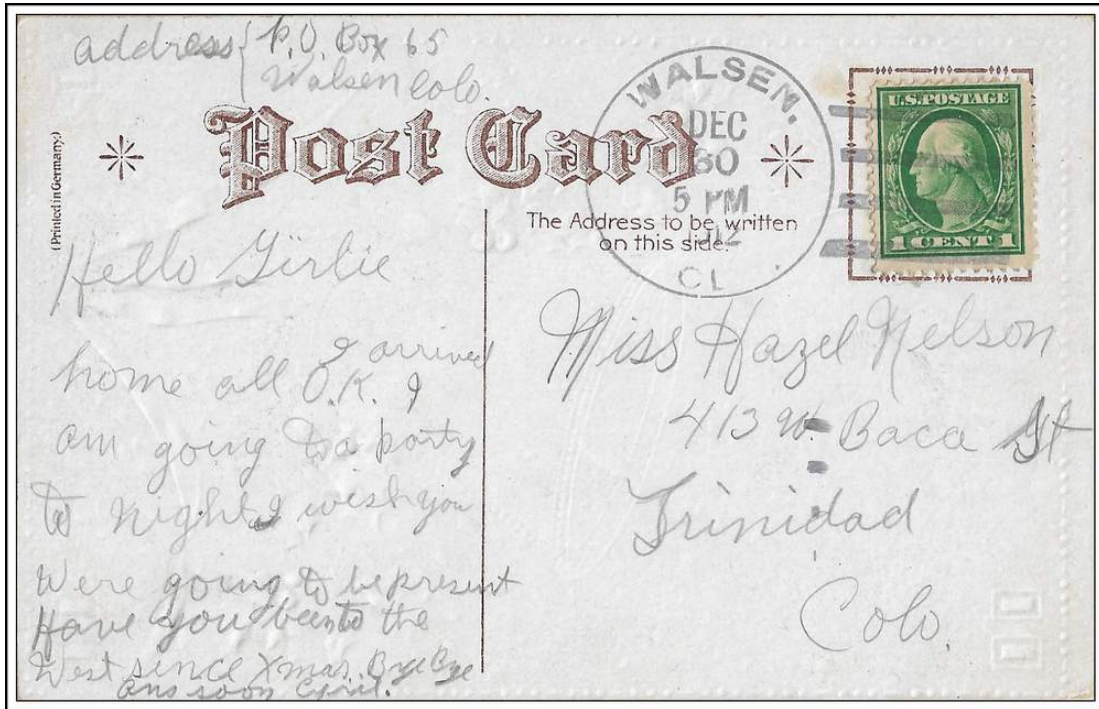 address { P.O. Box 65
Walsen Colo.
Post Card
(Printed in Germany.)
WALSEN.
DEC
30
5 PM
CL
U.S. POSTAGE
1 CENT 1
The Address to be written
on this side.
Hello Girlie
I arrived
home all O.K. I
am going to a party
to night I wish you
were going to be present
Have you been to the
West since Xmas. Bye Bye
ans soon
Miss Hazel Nelson
413 W. Baca St
Trinidad
Colo.